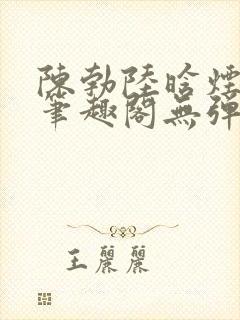 陳勃陸晗煙
筆趣閣無彈
王麗麗